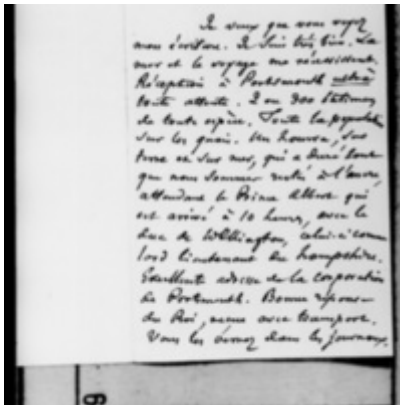 Je veux que vous voyez
mon écriture. Je suis très bien. La
mer et le voyage me réussissent.
Réception à Portsmouth
toute attente. 2 ou 300 bâtimens
de toute espèce. Toute la population
sur les quais. Un hourra, sur
terre et sur mer, qui a duré tant
que nous sommes restés à l'ancre,
attendant le Prince Albert qui
est arrivé à 10 heures, avec le
duc de Wellington, celui-ci comme
lord lieutenant du hampshire.
Excellente adresse de la corporation
de Portsmouth. Bonne réponse
du Roi, reçue avec transport.
Vous les verrez dans les journaux.
6